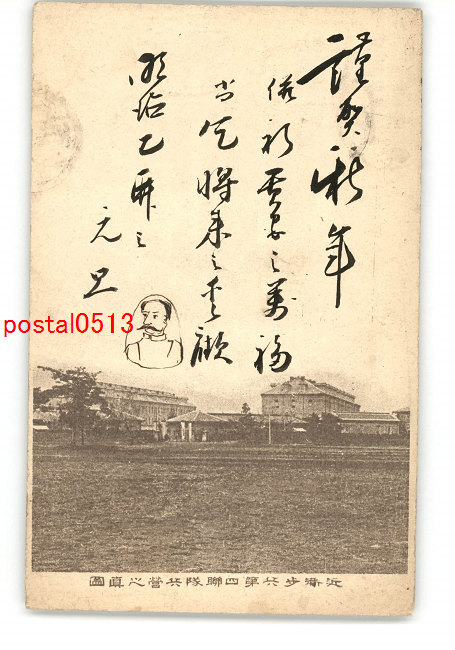 謹賀新年
併祈貴家之万福
尚乞将来之愛顧
明治乙卯之
元旦
postal0513
近衛歩兵第四聯隊兵營之眞圖